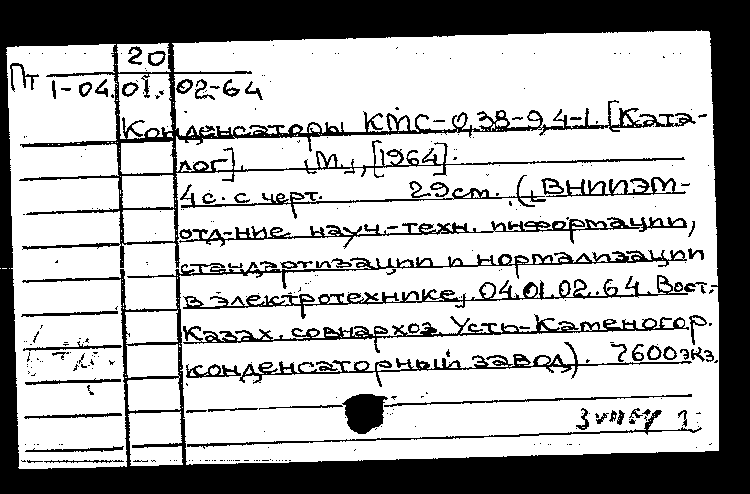 20
Пт I-04.01.02-64
Конденсаторы КМС-0,38-9,4-1. [Ката-
лог]. [М.], [1964].
4с. с черт. 29см. (ВНИИЭМ-
отд-ние науч.-техн. информации,
стандартизации и нормализации
в электротехнике, 04.01.02.64. Вост.-
Казах. совнархоз. Усть-Каменогор.
конденсаторный завод). 2600экз.